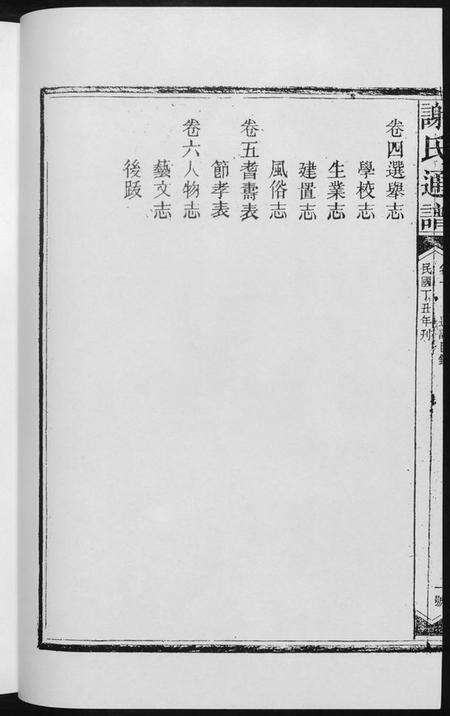 謝氏通譜
卷一
目錄
民國丁丑年刊
一號
卷四選舉志
學校志
生業志
建置志
風俗志
卷五耆壽表
節孝表
卷六人物志
藝文志
後跋